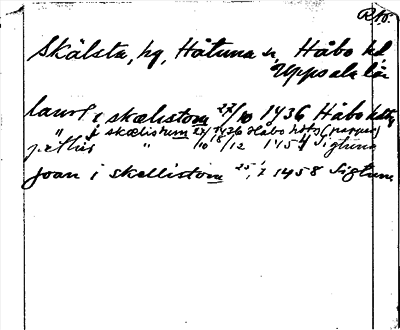 R 10.
Skälsta, hg, Håtuna sn, Håbo hd
Uppsala län
laur i skælistom 27/10 1436 Håbo hdtg
" i skælistum 27/10 1436 Håbo hdtg
pether " 18/12 1454 Sigtuna
Joan i skellistom 25/1 1458 Sigtuna